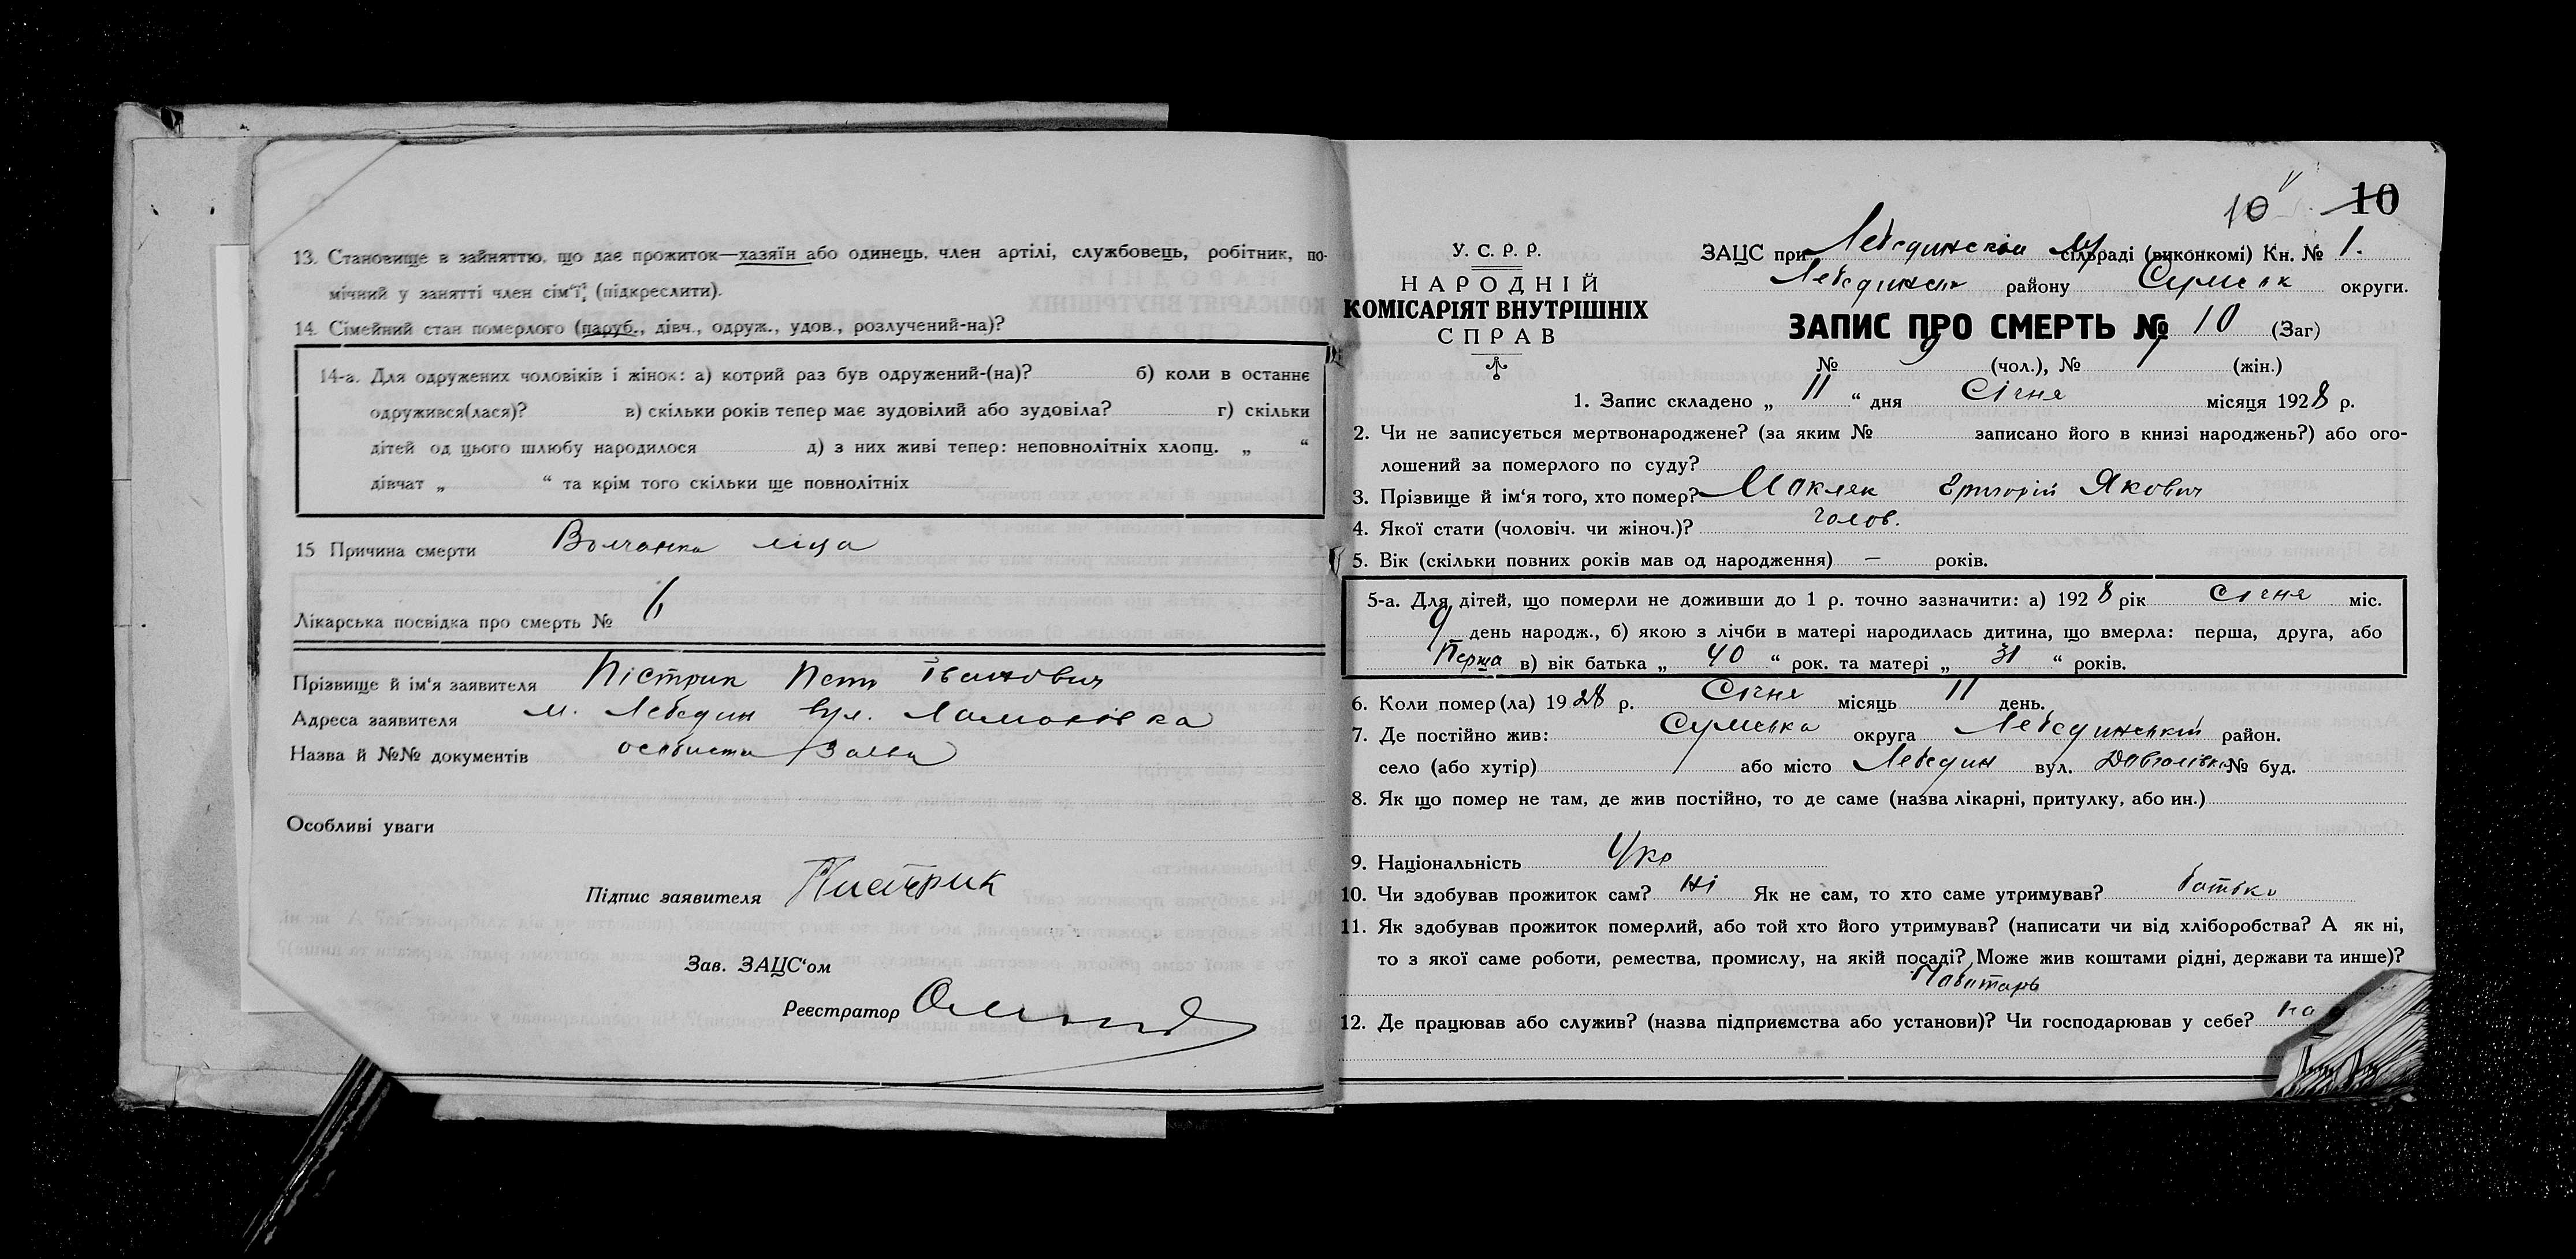 13. Становище в зайняттю, що дає прожиток—хазяїн або одинець, член артілі, службовець, робітник, по-
мічний у занятті член сім'ї, (підкреслити).
14. Сімейний стан померлого (паруб., дівч., одруж., удов., розлучений-на)?
14-а. Для одружених чоловіків і жінок: а) котрий раз був одружений-(на)? б) коли в останнє
одружився(лася)? в) скільки років тепер має зудовілий або зудовіла? г) скільки
дітей од цього шлюбу народилося д) з них живі тепер: неповнолітніх хлопц. „ “
дівчат „ “ та крім того скільки ще повнолітніх
15 Причина смерти Волчанка ліца
Лікарська посвідка про смерть № 6
Прізвище й ім'я заявителя Пістрик Іванович
Адреса заявителя м. Лебедин вул.
Назва й №№ документів особиста заява
Особливі уваги
Підпис заявителя Пистрик
Зав. ЗАЦС'ом
Реєстратор
10 10
У. С. Р. Р.
НАРОДНІЙ
КОМІСАРІЯТ ВНУТРІШНІХ
СПРАВ
ЗАЦС при Лебединской сільраді (виконкомі) Кн. № 1.
Лебединськ району Сумськ округи.
ЗАПИС ПРО СМЕРТЬ № 10 (Заг)
№ 9 (чол.), № 1 (жін.)
1. Запис складено „ 11 “ дня Січня місяця 1928 р.
2. Чи не записується мертвонароджене? (за яким № записано його в книзі народжень?) або ого-
лошений за померлого по суду?
3. Прізвище й ім'я того, хто помер? Макляк Григорій Якович
4. Якої стати (чоловіч. чи жіноч.)? чолов.
5. Вік (скільки повних років мав од народження) — років.
5-а. Для дітей, що померли не доживши до 1 р. точно зазначити: а) 1928 рік Січня міс.
9 день народж., б) якою з лічби в матері народилась дитина, що вмерла: перша, друга, або
Перша в) вік батька „ 40 “ рок. та матері „ 31 “ років.
6. Коли помер(ла) 1928 р. Січня місяць 11 день.
7. Де постійно жив: Сумська округа Лебединський район.
село (або хутір) або місто Лебедин вул. № буд.
8. Як що помер не там, де жив постійно, то де саме (назва лікарні, притулку, або ин.)
9. Національність Укр
10. Чи здобував прожиток сам? Ні Як не сам, то хто саме утримував? батько
11. Як здобував прожиток померлий, або той хто його утримував? (написати чи від хліборобства? А як ні,
то з якої саме роботи, ремества, промислу, на якій посаді? Може жив коштами рідні, держави та инше)?
Чоботарь
12. Де працював або служив? (назва підприємства або установи)? Чи господарював у себе?